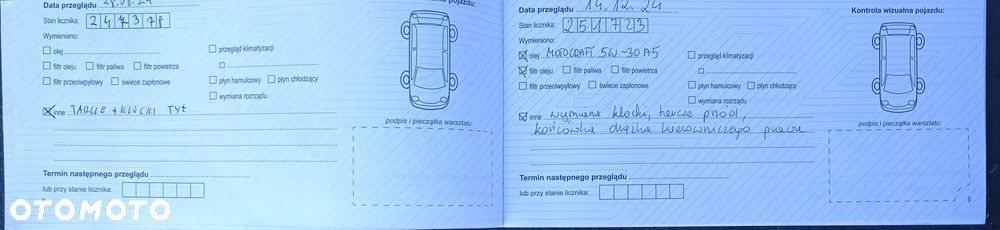 Data przeglądu 28.08.24
Stan licznika: 247378
Wymieniono:
olej
przegląd klimatyzacji
filtr oleju filtr paliwa filtr powietrza
filtr przeciwpyłowy świece zapłonowe
płyn hamulcowy płyn chłodzący
wymiana rozrządu
inne TARCZE + KLOCKI TYŁ
podpis i pieczątka warsztatu:
Termin następnego przeglądu
lub przy stanie licznika:
OTOMOTO
Data przeglądu 14.12.24
Kontrola wizualna pojazdu:
Stan licznika: 251723
Wymieniono:
olej MOTOCRAFT 5W-30 A5
przegląd klimatyzacji
filtr oleju filtr paliwa filtr powietrza
filtr przeciwpyłowy świece zapłonowe
płyn hamulcowy płyn chłodzący
wymiana rozrządu
inne wymiana klocki, tarcze przód,
końcówka drążka kierowniczego prawa
podpis i pieczątka warsztatu:
Termin następnego przeglądu
lub przy stanie licznika:
9